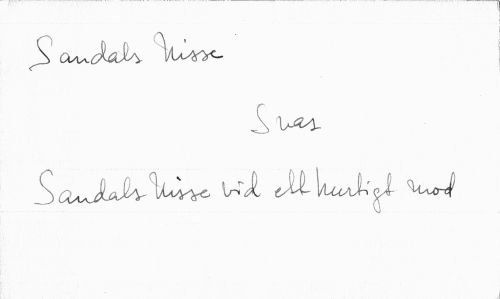 Sandals Nisse
Svas
Sandals Nisse vid ett hurtigt mod